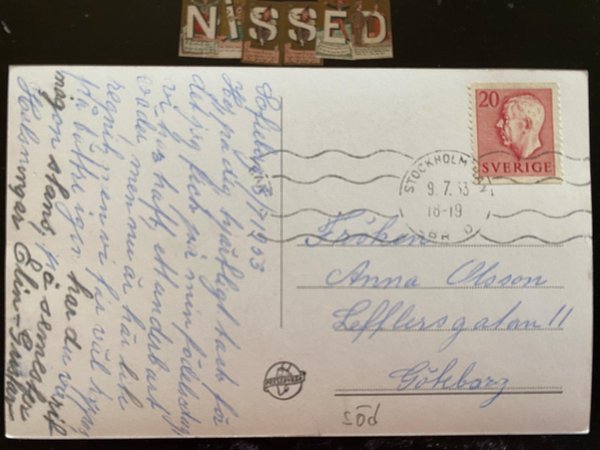 NiSSED
20
SVERIGE
STOCKHOLM
9.7.53
18-19
8/7 1953
Hej på dig hjärtligt tack för
det jag fick på min födelsedag
vi har haft ett underbart
väder men nu är här lite
regnig men vi får väl hoppas
på bättre igen har du varit
någon stans på semester
Hälsningar Elin-Gustav
Fröken
Anna Olsson
Lefflersgatan 11
Göteborg